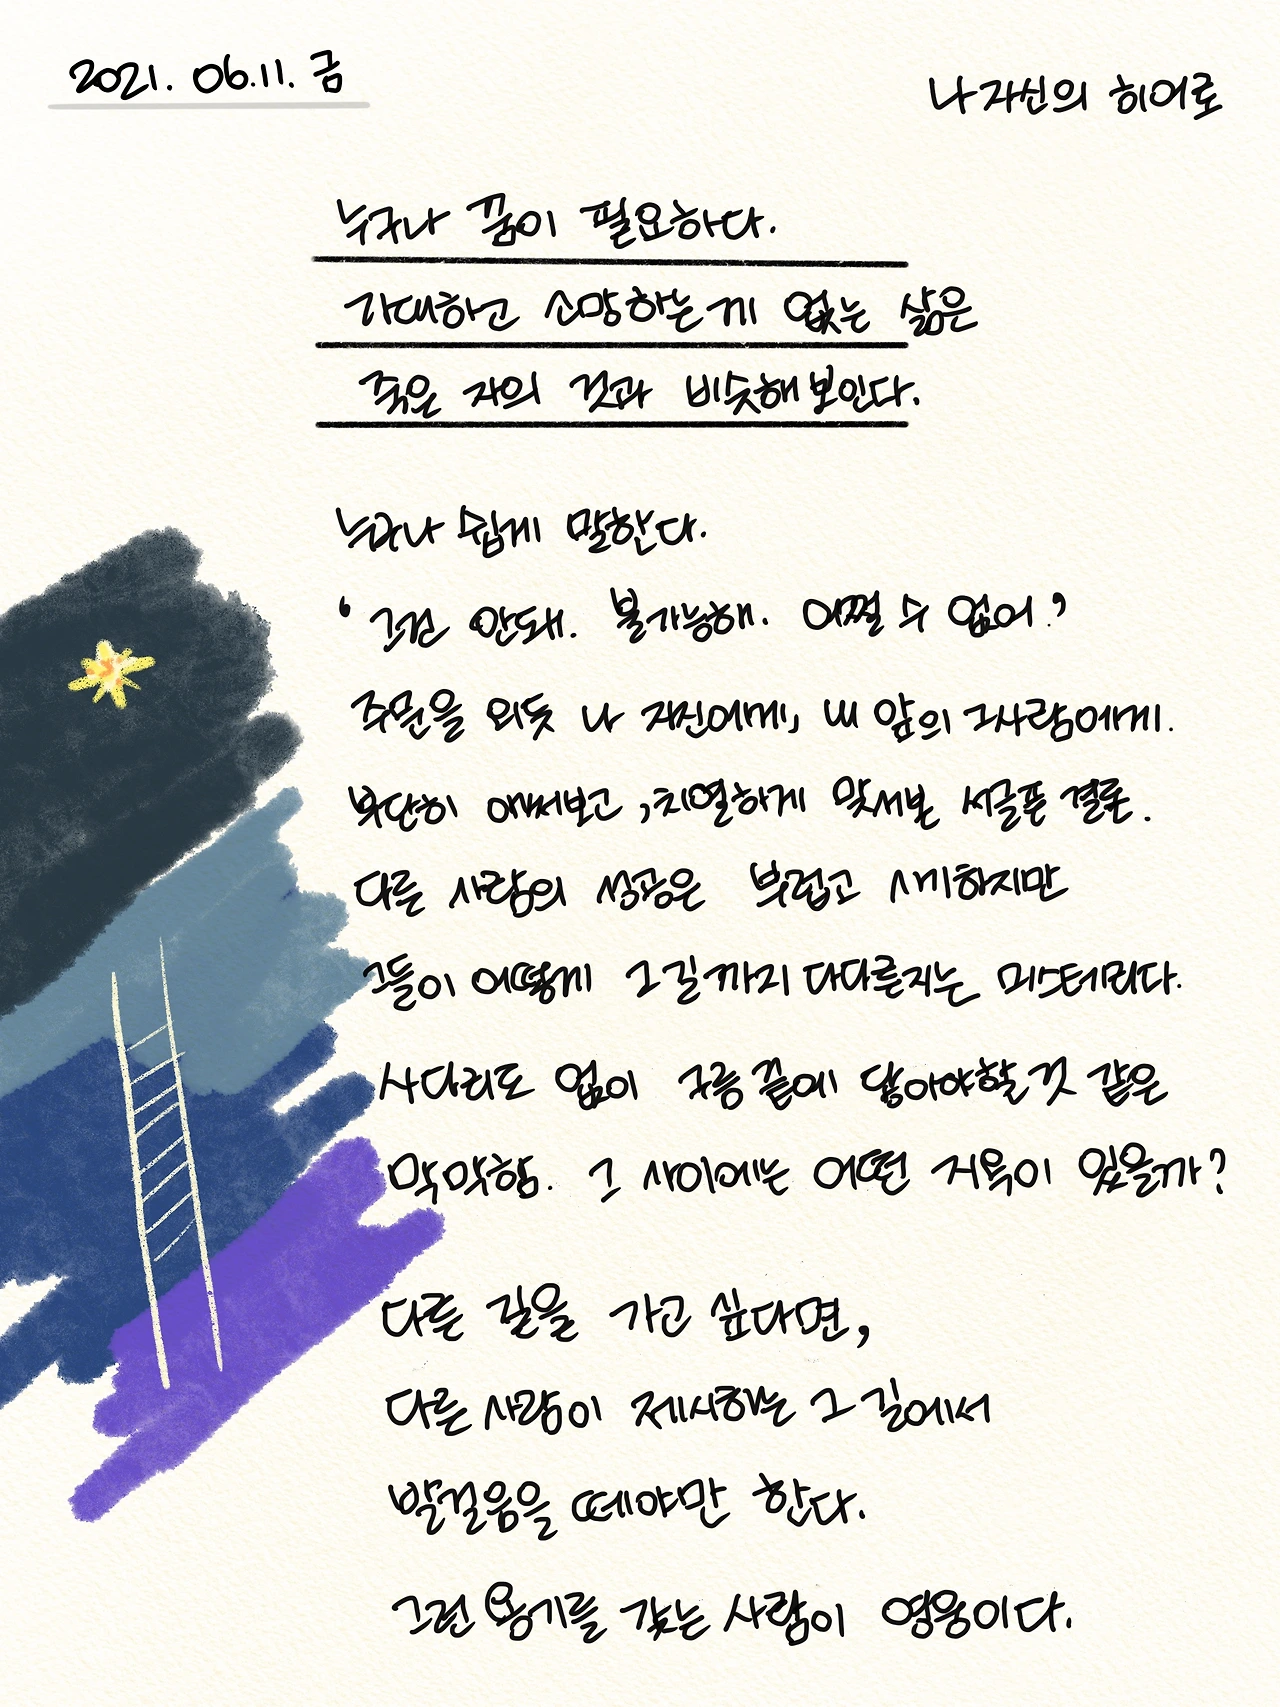 2021. 06.11. 금
나 자신의 히어로
누구나 꿈이 필요하다.
기대하고 소망하는게 없는 삶은
죽은 자의 것과 비슷해보인다.
누구나 쉽게 말한다.
'그건 안돼. 불가능해. 어쩔 수 없어.'
주문을 외듯 나 자신에게, 내 앞의 그사람에게.
부단히 애써보고, 치열하게 맞서본 서글픈 결론.
다른 사람의 성공은 부럽고 시기하지만
그들이 어떻게 그 길까지 다다른지는 미스테리다.
사다리도 없이 구름 끝에 닿아야할것 같은
막막함. 그 사이에는 어떤 거목이 있을까?
다른 길을 가고 싶다면,
다른 사람이 제시하는 그 길에서
발걸음을 떼야만 한다.
그런 용기를 갖는 사람이 영웅이다.